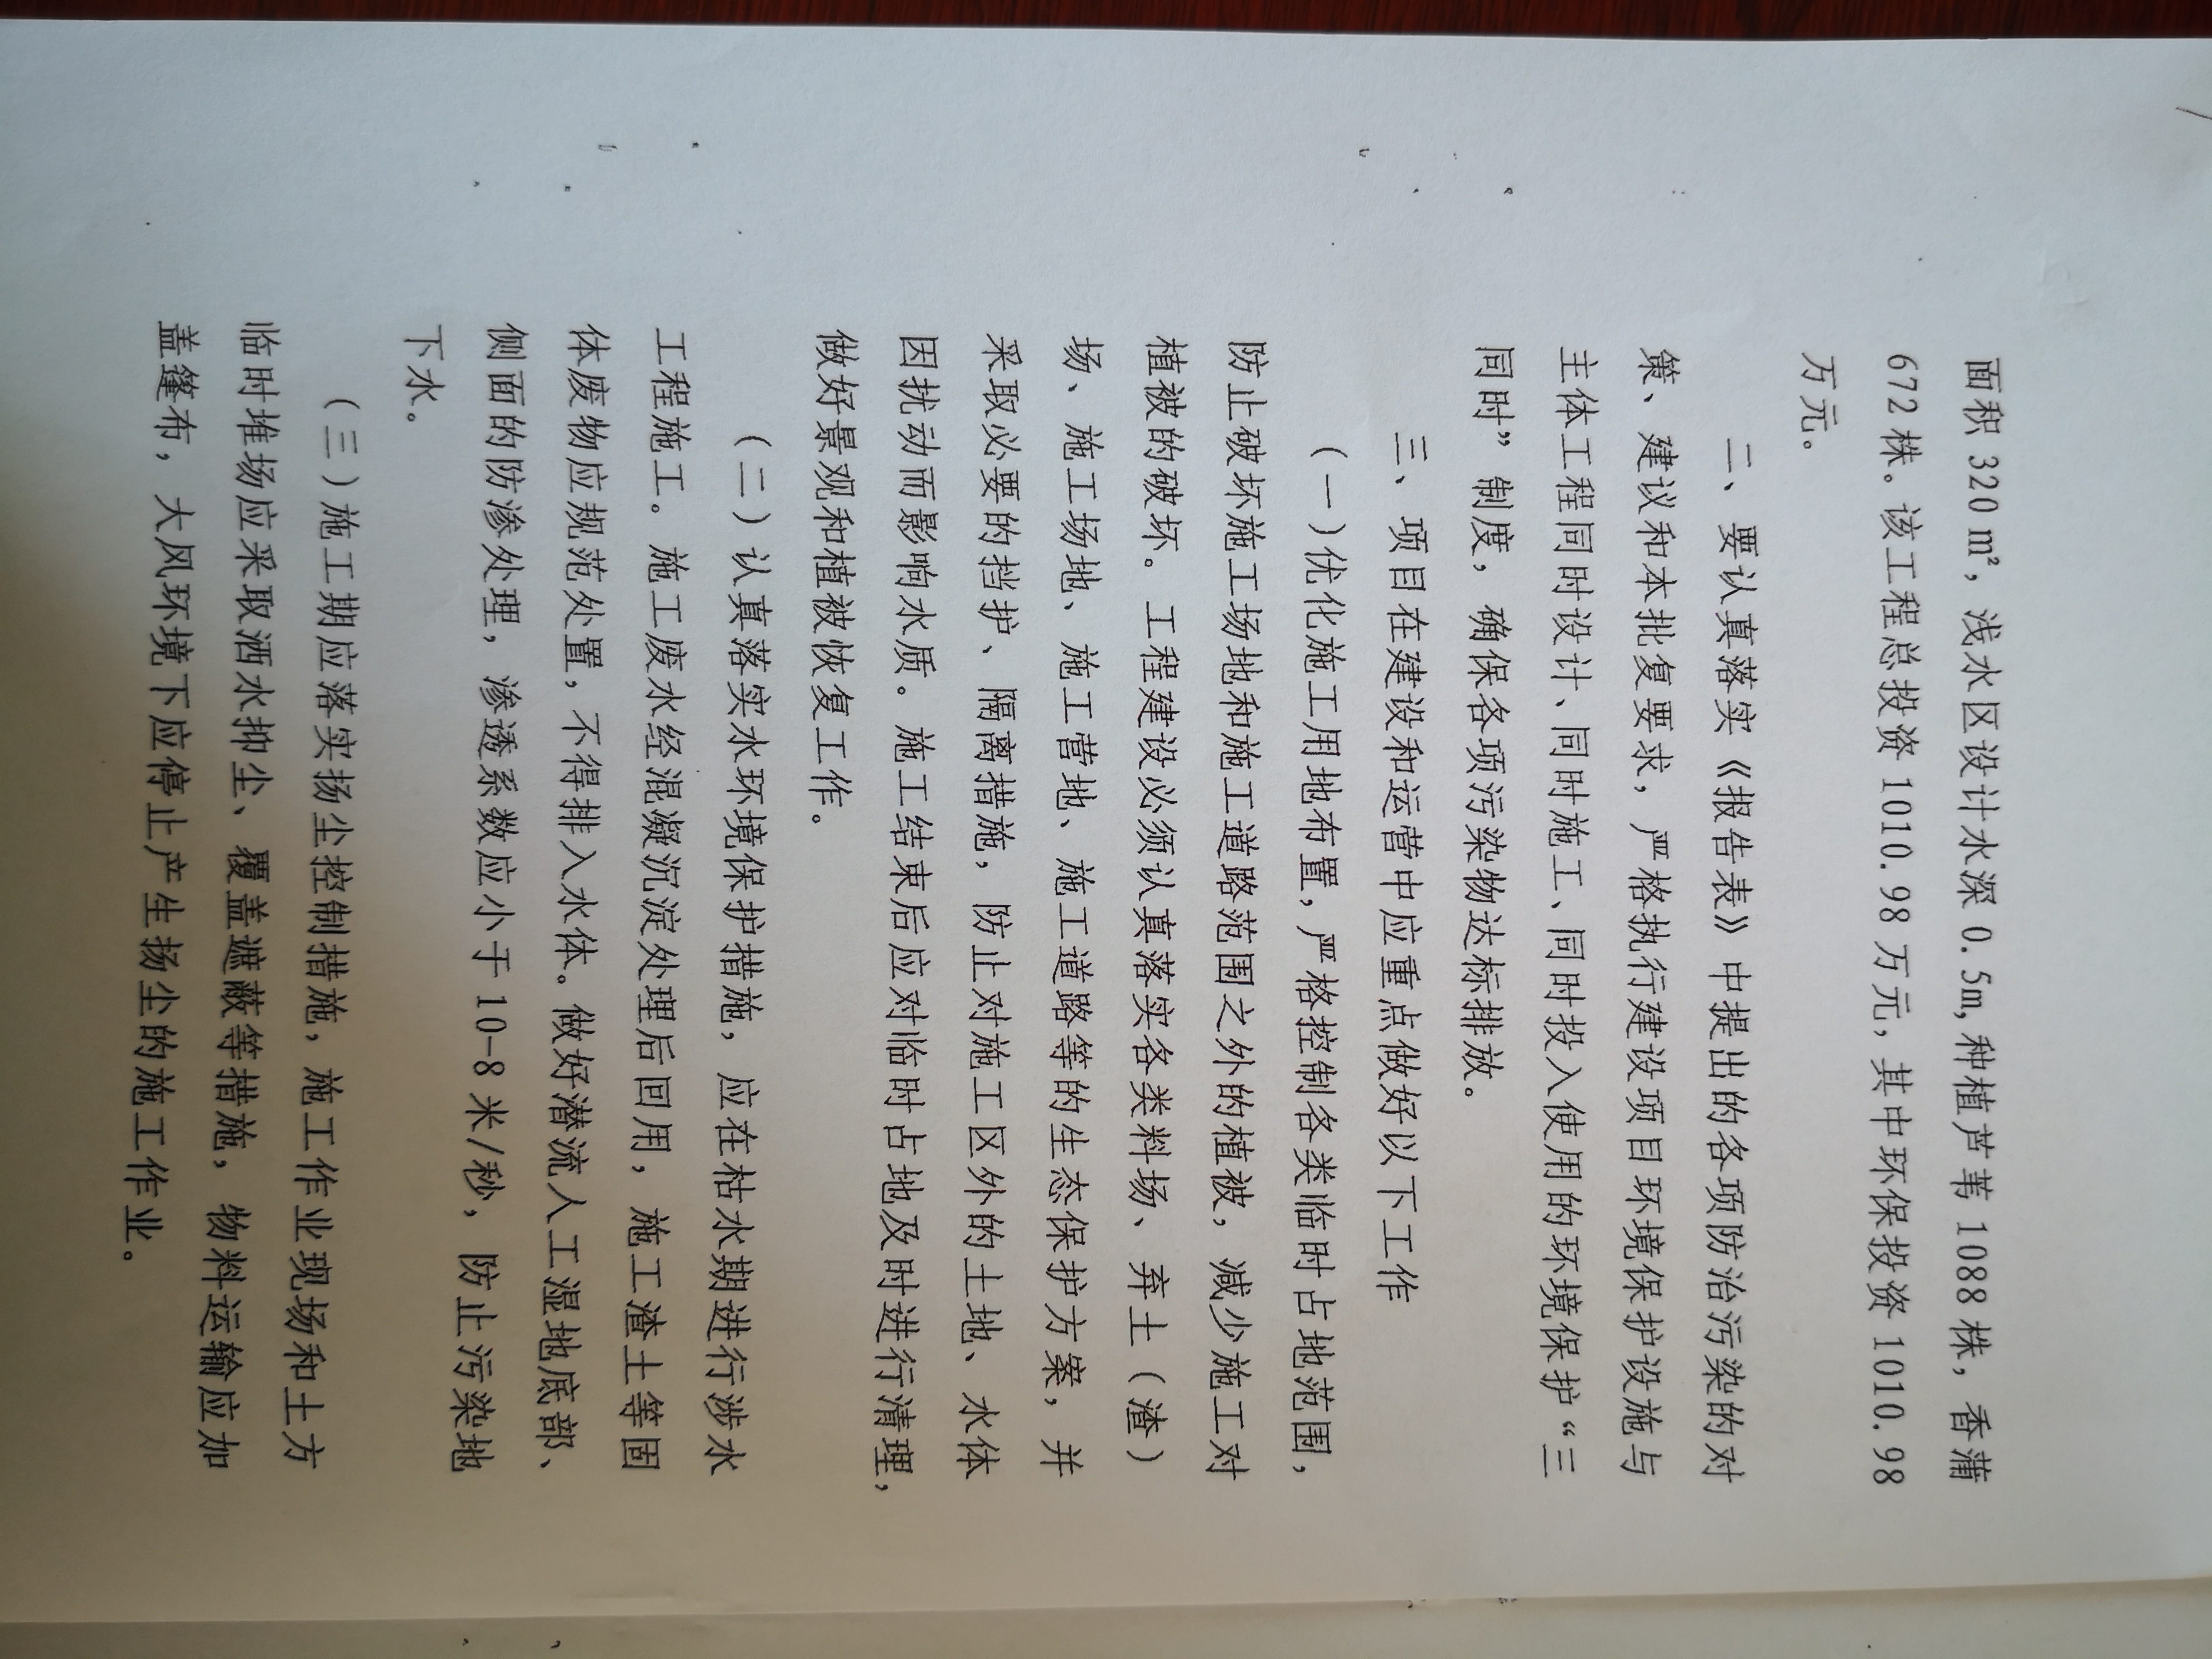 面积 320 m²，浅水区设计水深 0.5m,种植芦苇 1088 株，香蒲
672 株。该工程总投资 1010.98 万元，其中环保投资 1010.98
万元。
二、要认真落实《报告表》中提出的各项防治污染的对
策、建议和本批复要求，严格执行建设项目环境保护设施与
主体工程同时设计、同时施工、同时投入使用的环境保护“三
同时”制度，确保各项污染物达标排放。
三、项目在建设和运营中应重点做好以下工作
（一）优化施工用地布置，严格控制各类临时占地范围，
防止破坏施工场地和施工道路范围之外的植被，减少施工对
植被的破坏。工程建设必须认真落实各类料场、弃土（渣）
场、施工场地、施工营地、施工道路等的生态保护方案，并
采取必要的挡护、隔离措施，防止对施工区外的土地、水体
因扰动而影响水质。施工结束后应对临时占地及时进行清理，
做好景观和植被恢复工作。
（二）认真落实水环境保护措施，应在枯水期进行涉水
工程施工。施工废水经混凝沉淀处理后回用，施工渣土等固
体废物应规范处置，不得排入水体。做好潜流人工湿地底部、
侧面的防渗处理，渗透系数应小于 10-8 米/秒，防止污染地
下水。
（三）施工期应落实扬尘控制措施，施工作业现场和土方
临时堆场应采取洒水抑尘、覆盖遮蔽等措施，物料运输应加
盖篷布，大风环境下应停止产生扬尘的施工作业。